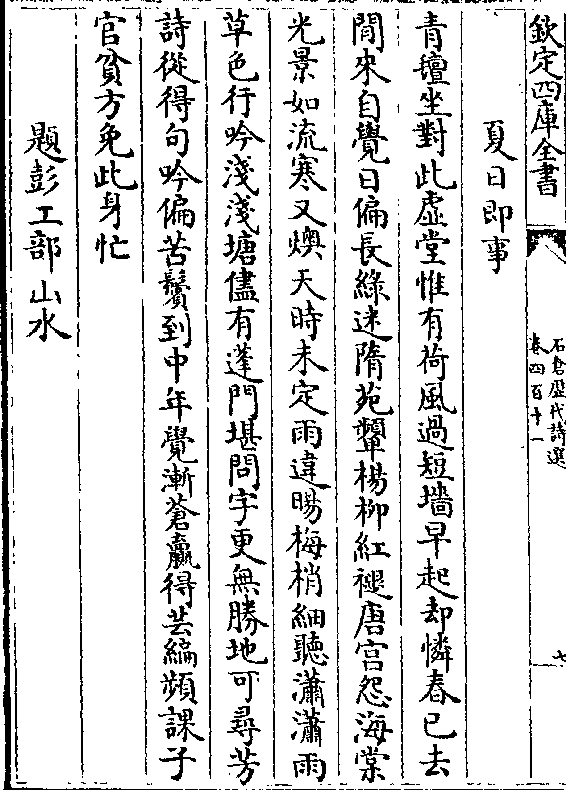 欽定四庫全書
石倉歷代詩選
卷四百十一
七
夏日即事
青氊坐對此虛堂惟有荷風過短墻早起却憐春已去
閒來自覺日偏長綠迷隋苑顰楊柳紅褪唐宫怨海棠
光景如流寒又燠天時未定雨違暘梅梢細聽瀟瀟雨
草色行吟淺淺塘儘有蓬門堪問字更無勝地可尋芳
詩從得句吟偏苦鬢到中年覺漸蒼羸得芸編頻課子
官貧方免此身忙
題彭工部山水